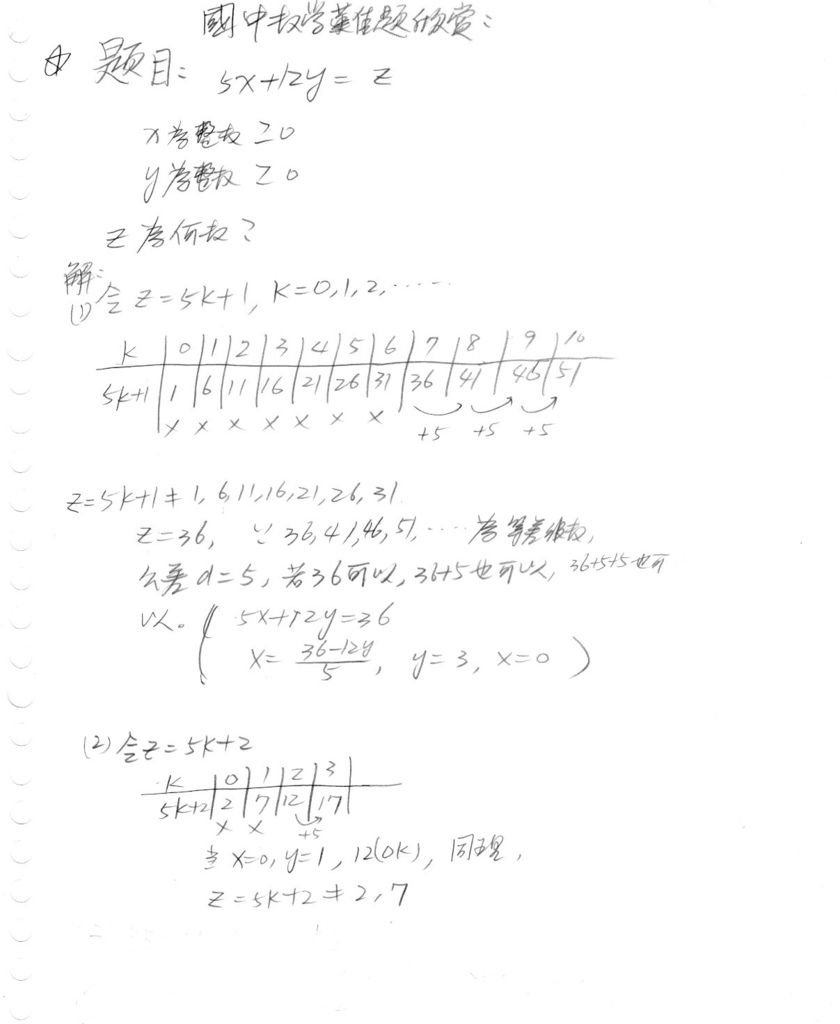 國中数学華佳題欣賞:
☆ 题目: 5x+12y= z
x為整数 ≥0
y為整数 ≥0
z 為何数?
解:
(1) 令 z=5k+1, k=0,1,2,......
k 0 1 2 3 4 5 6 7 8 9 10
5k+1 1 6 11 16 21 26 31 36 41 46 51
x x x x x x x +5 +5 +5
z=5k+1≠1,6,11,16,21,26,31
z=36, ∵ 36,41,46,51,.... 為等差级数,
公差d=5, 若36可以, 36+5也可以, 36+5+5也可
以。( 5x+12y=36
x= 36-12y/5, y=3, x=0 )
(2) 令z=5k+2
k 0 1 2 3
5k+2 2 7 12 17
x x +5
當 x=0, y=1, 12(OK), 同理,
z=5k+2≠2,7